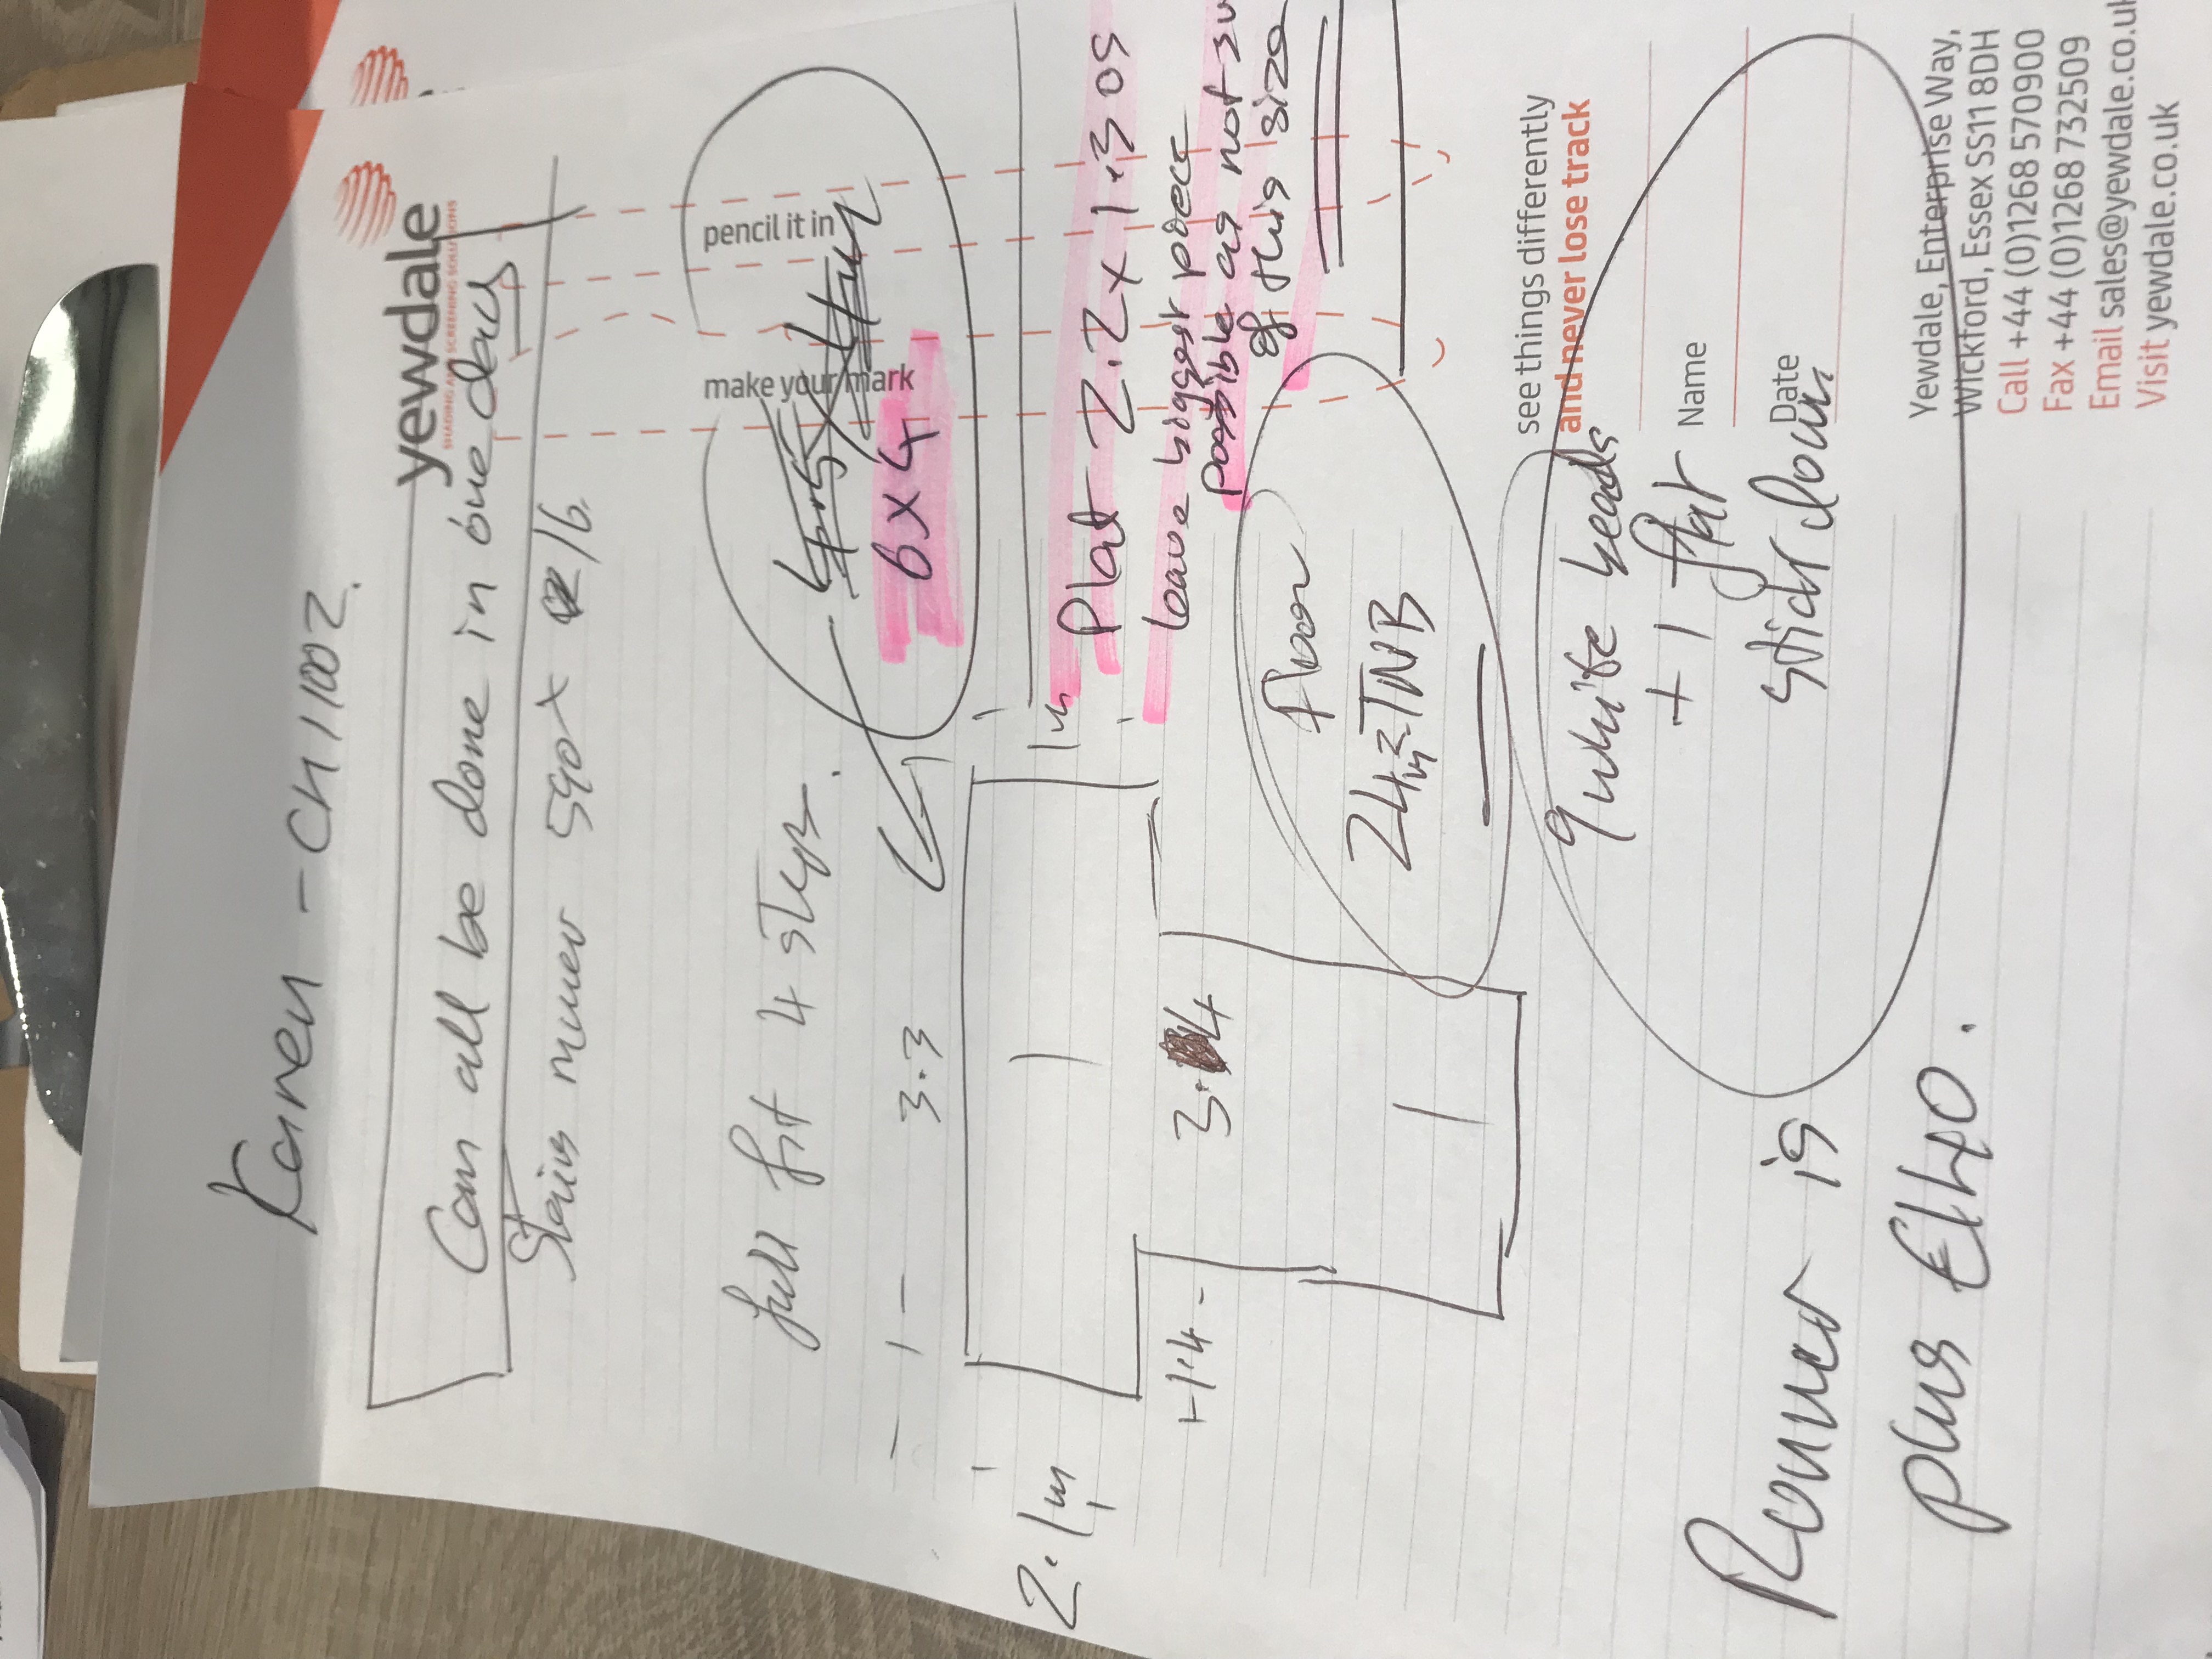 Karen - CH11002.
yewdale
SHADING AND SCREENING SOLUTIONS
Can all be done in one day
Stairs runner 590 x 16.
pencil it in
make your mark
full fit 4 steps.
6 x 4
3.3
1m
2.1m
Plat 2.2 x 1.305
leave biggest piece
possible as not su
of this size
3.4
1.4
floor
24m² TNB
see things differently
and never lose track
Name
Date
9 white heads
+ 1 flat
stick down
Runner is
plus £1140.
Yewdale, Enterprise Way,
Wickford, Essex SS11 8DH
Call +44 (0)1268 570900
Fax +44 (0)1268 732509
Email sales@yewdale.co.uk
Visit yewdale.co.uk